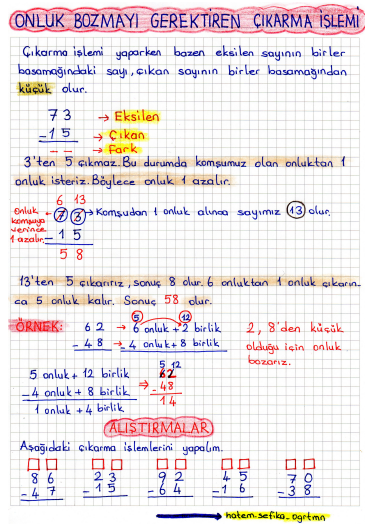 ONLUK BOZMAYI GEREKTİREN ÇIKARMA İŞLEMİ
Çıkarma işlemi yaparken bazen eksilen sayının birler
basamağındaki sayı, çıkan sayının birler basamağından
küçük olur.
7 3 → Eksilen
- 1 5 → Çıkan
- - → Fark
3'ten 5 çıkmaz. Bu durumda komşumuz olan onluktan 1
onluk isteriz. Böylece onluk 1 azalır.
6 13
Onluk komşuya verince 1 azalır.
7 3 → Komşudan 1 onluk alınca sayımız 13 olur.
- 1 5
5 8
13'ten 5 çıkarırız, sonuç 8 olur. 6 onluktan 1 onluk çıkarın-
ca 5 onluk kalır. Sonuç 58 olur.
5 12
ÖRNEK: 6 2 → 6 onluk + 2 birlik
- 4 8 → - 4 onluk + 8 birlik
2, 8'den küçük
olduğu için onluk
bozarız.
5 onluk + 12 birlik
- 4 onluk + 8 birlik
1 onluk + 4 birlik
⇒
5 12
6 2
- 4 8
1 4
ALIŞTIRMALAR
Aşağıdaki çıkarma işlemlerini yapalım.
8 6 2 3 9 2 4 5 7 0
- 4 7 - 1 5 - 6 4 - 1 6 - 3 8
→ hatem-sefika_ogrtmn